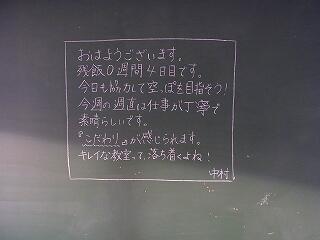 おはようございます。
残飯0週間4日目です。
今日も協力して空っぽを目指そう!
今週の週直は仕事が丁寧で
素晴らしいです。
『こだわり』が感じられます。
キレイな教室って、落ち着くよね!
中村